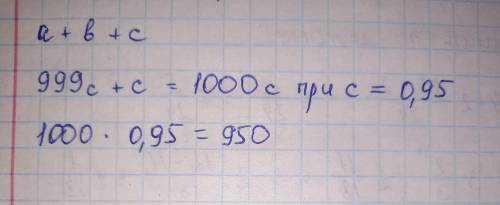 a + b + c
999c + c = 1000c при c = 0,95
1000 · 0,95 = 950